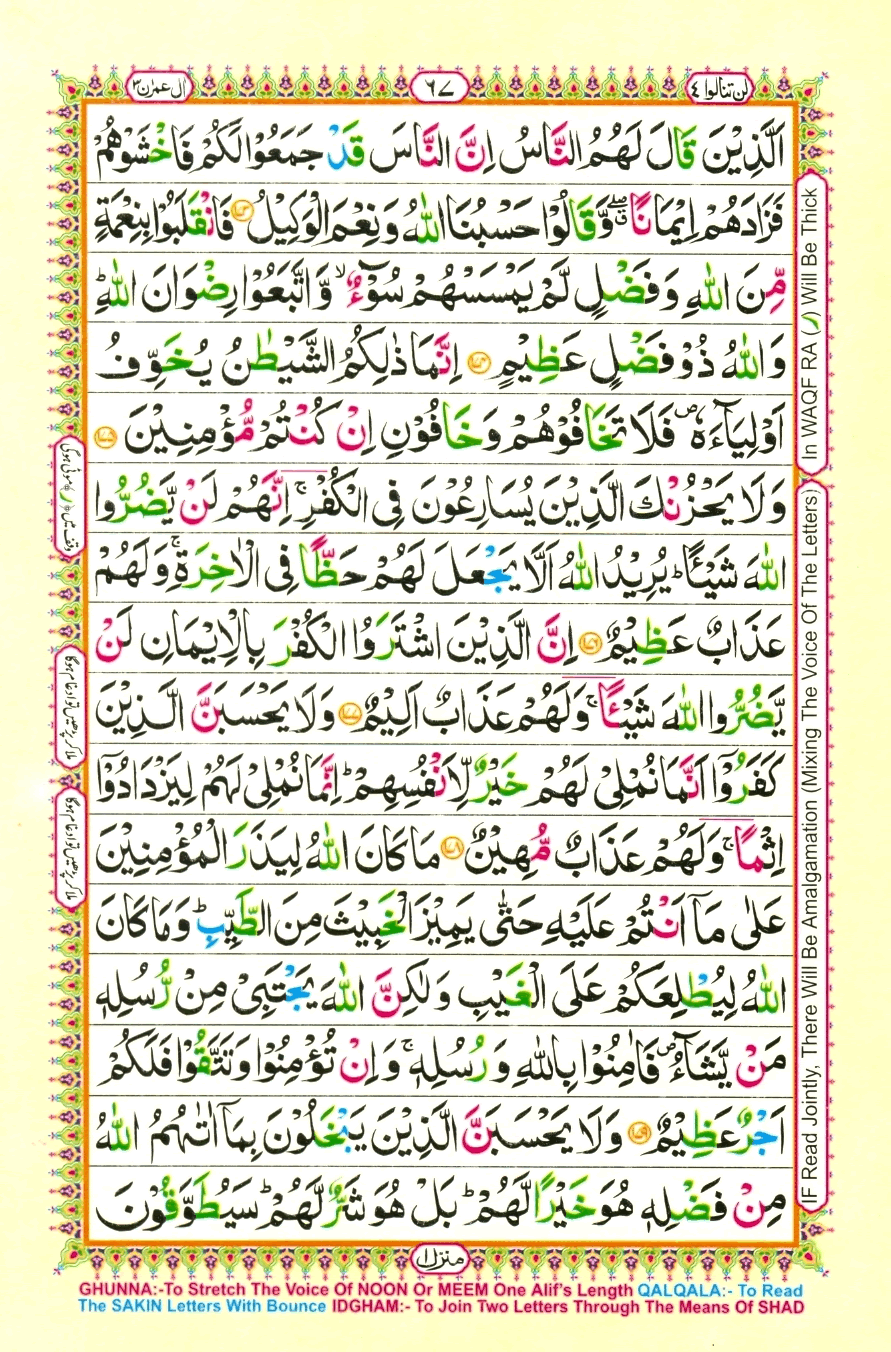 لن تنالوا ٤
٦٧
اٰل عمرٰن ٣
اَلَّذِيْنَ قَالَ لَهُمُ النَّاسُ اِنَّ النَّاسَ قَدْ جَمَعُوْا لَكُمْ فَاخْشَوْهُمْ
فَزَادَهُمْ اِيْمَانًا ۖۗ وَّقَالُوْا حَسْبُنَا اللّٰهُ وَنِعْمَ الْوَكِيْلُ ﴿۱۷۳﴾ فَانْقَلَبُوْا بِنِعْمَةٍ
مِّنَ اللّٰهِ وَفَضْلٍ لَّمْ يَمْسَسْهُمْ سُوْٓءٌ ۙ وَّاتَّبَعُوْا رِضْوَانَ اللّٰهِ ؕ
وَاللّٰهُ ذُوْ فَضْلٍ عَظِيْمٍ ﴿۱۷۴﴾ اِنَّمَا ذٰلِكُمُ الشَّيْطٰنُ يُخَوِّفُ
اَوْلِيَآءَهٗ ۪ فَلَا تَخَافُوْهُمْ وَخَافُوْنِ اِنْ كُنْتُمْ مُّؤْمِنِيْنَ ﴿۱۷۵﴾
وَلَا يَحْزُنْكَ الَّذِيْنَ يُسَارِعُوْنَ فِى الْكُفْرِ ۚ اِنَّهُمْ لَنْ يَّضُرُّوا
اللّٰهَ شَيْـًٔا ؕ يُرِيْدُ اللّٰهُ اَلَّا يَجْعَلَ لَهُمْ حَظًّا فِى الْاٰخِرَةِ ۚ وَلَهُمْ
عَذَابٌ عَظِيْمٌ ﴿۱۷۶﴾ اِنَّ الَّذِيْنَ اشْتَرَوُا الْكُفْرَ بِالْاِيْمَانِ لَنْ
يَّضُرُّوا اللّٰهَ شَيْـًٔا ۚ وَلَهُمْ عَذَابٌ اَلِيْمٌ ﴿۱۷۷﴾ وَلَا يَحْسَبَنَّ الَّذِيْنَ
كَفَرُوْٓا اَنَّمَا نُمْلِىْ لَهُمْ خَيْرٌ لِّاَنْفُسِهِمْ ؕ اِنَّمَا نُمْلِىْ لَهُمْ لِيَزْدَادُوْٓا
اِثْمًا ۚ وَلَهُمْ عَذَابٌ مُّهِيْنٌ ﴿۱۷۸﴾ مَا كَانَ اللّٰهُ لِيَذَرَ الْمُؤْمِنِيْنَ
عَلٰى مَآ اَنْتُمْ عَلَيْهِ حَتّٰى يَمِيْزَ الْخَبِيْثَ مِنَ الطَّيِّبِ ؕ وَمَا كَانَ
اللّٰهُ لِيُطْلِعَكُمْ عَلَى الْغَيْبِ وَلٰكِنَّ اللّٰهَ يَجْتَبِىْ مِنْ رُّسُلِهٖ
مَنْ يَّشَآءُ ۪ فَاٰمِنُوْا بِاللّٰهِ وَرُسُلِهٖ ۚ وَاِنْ تُؤْمِنُوْا وَتَتَّقُوْا فَلَكُمْ
اَجْرٌ عَظِيْمٌ ﴿۱۷۹﴾ وَلَا يَحْسَبَنَّ الَّذِيْنَ يَبْخَلُوْنَ بِمَآ اٰتٰىهُمُ اللّٰهُ
مِنْ فَضْلِهٖ هُوَ خَيْرًا لَّهُمْ ؕ بَلْ هُوَ شَرٌّ لَّهُمْ ؕ سَيُطَوَّقُوْنَ
منزل ١
In WAQF RA (ر) Will Be Thick
IF Read Jointly, There Will Be Amalgamation (Mixing The Voice Of The Letters)
وقف میں (ر) موٹی ہوگی
ملا کر پڑھیں تو ادغام ہوگا
ملا کر پڑھیں تو ادغام ہوگا
GHUNNA:-To Stretch The Voice Of NOON Or MEEM One Alif's Length QALQALA:- To Read
The SAKIN Letters With Bounce IDGHAM:- To Join Two Letters Through The Means Of SHAD